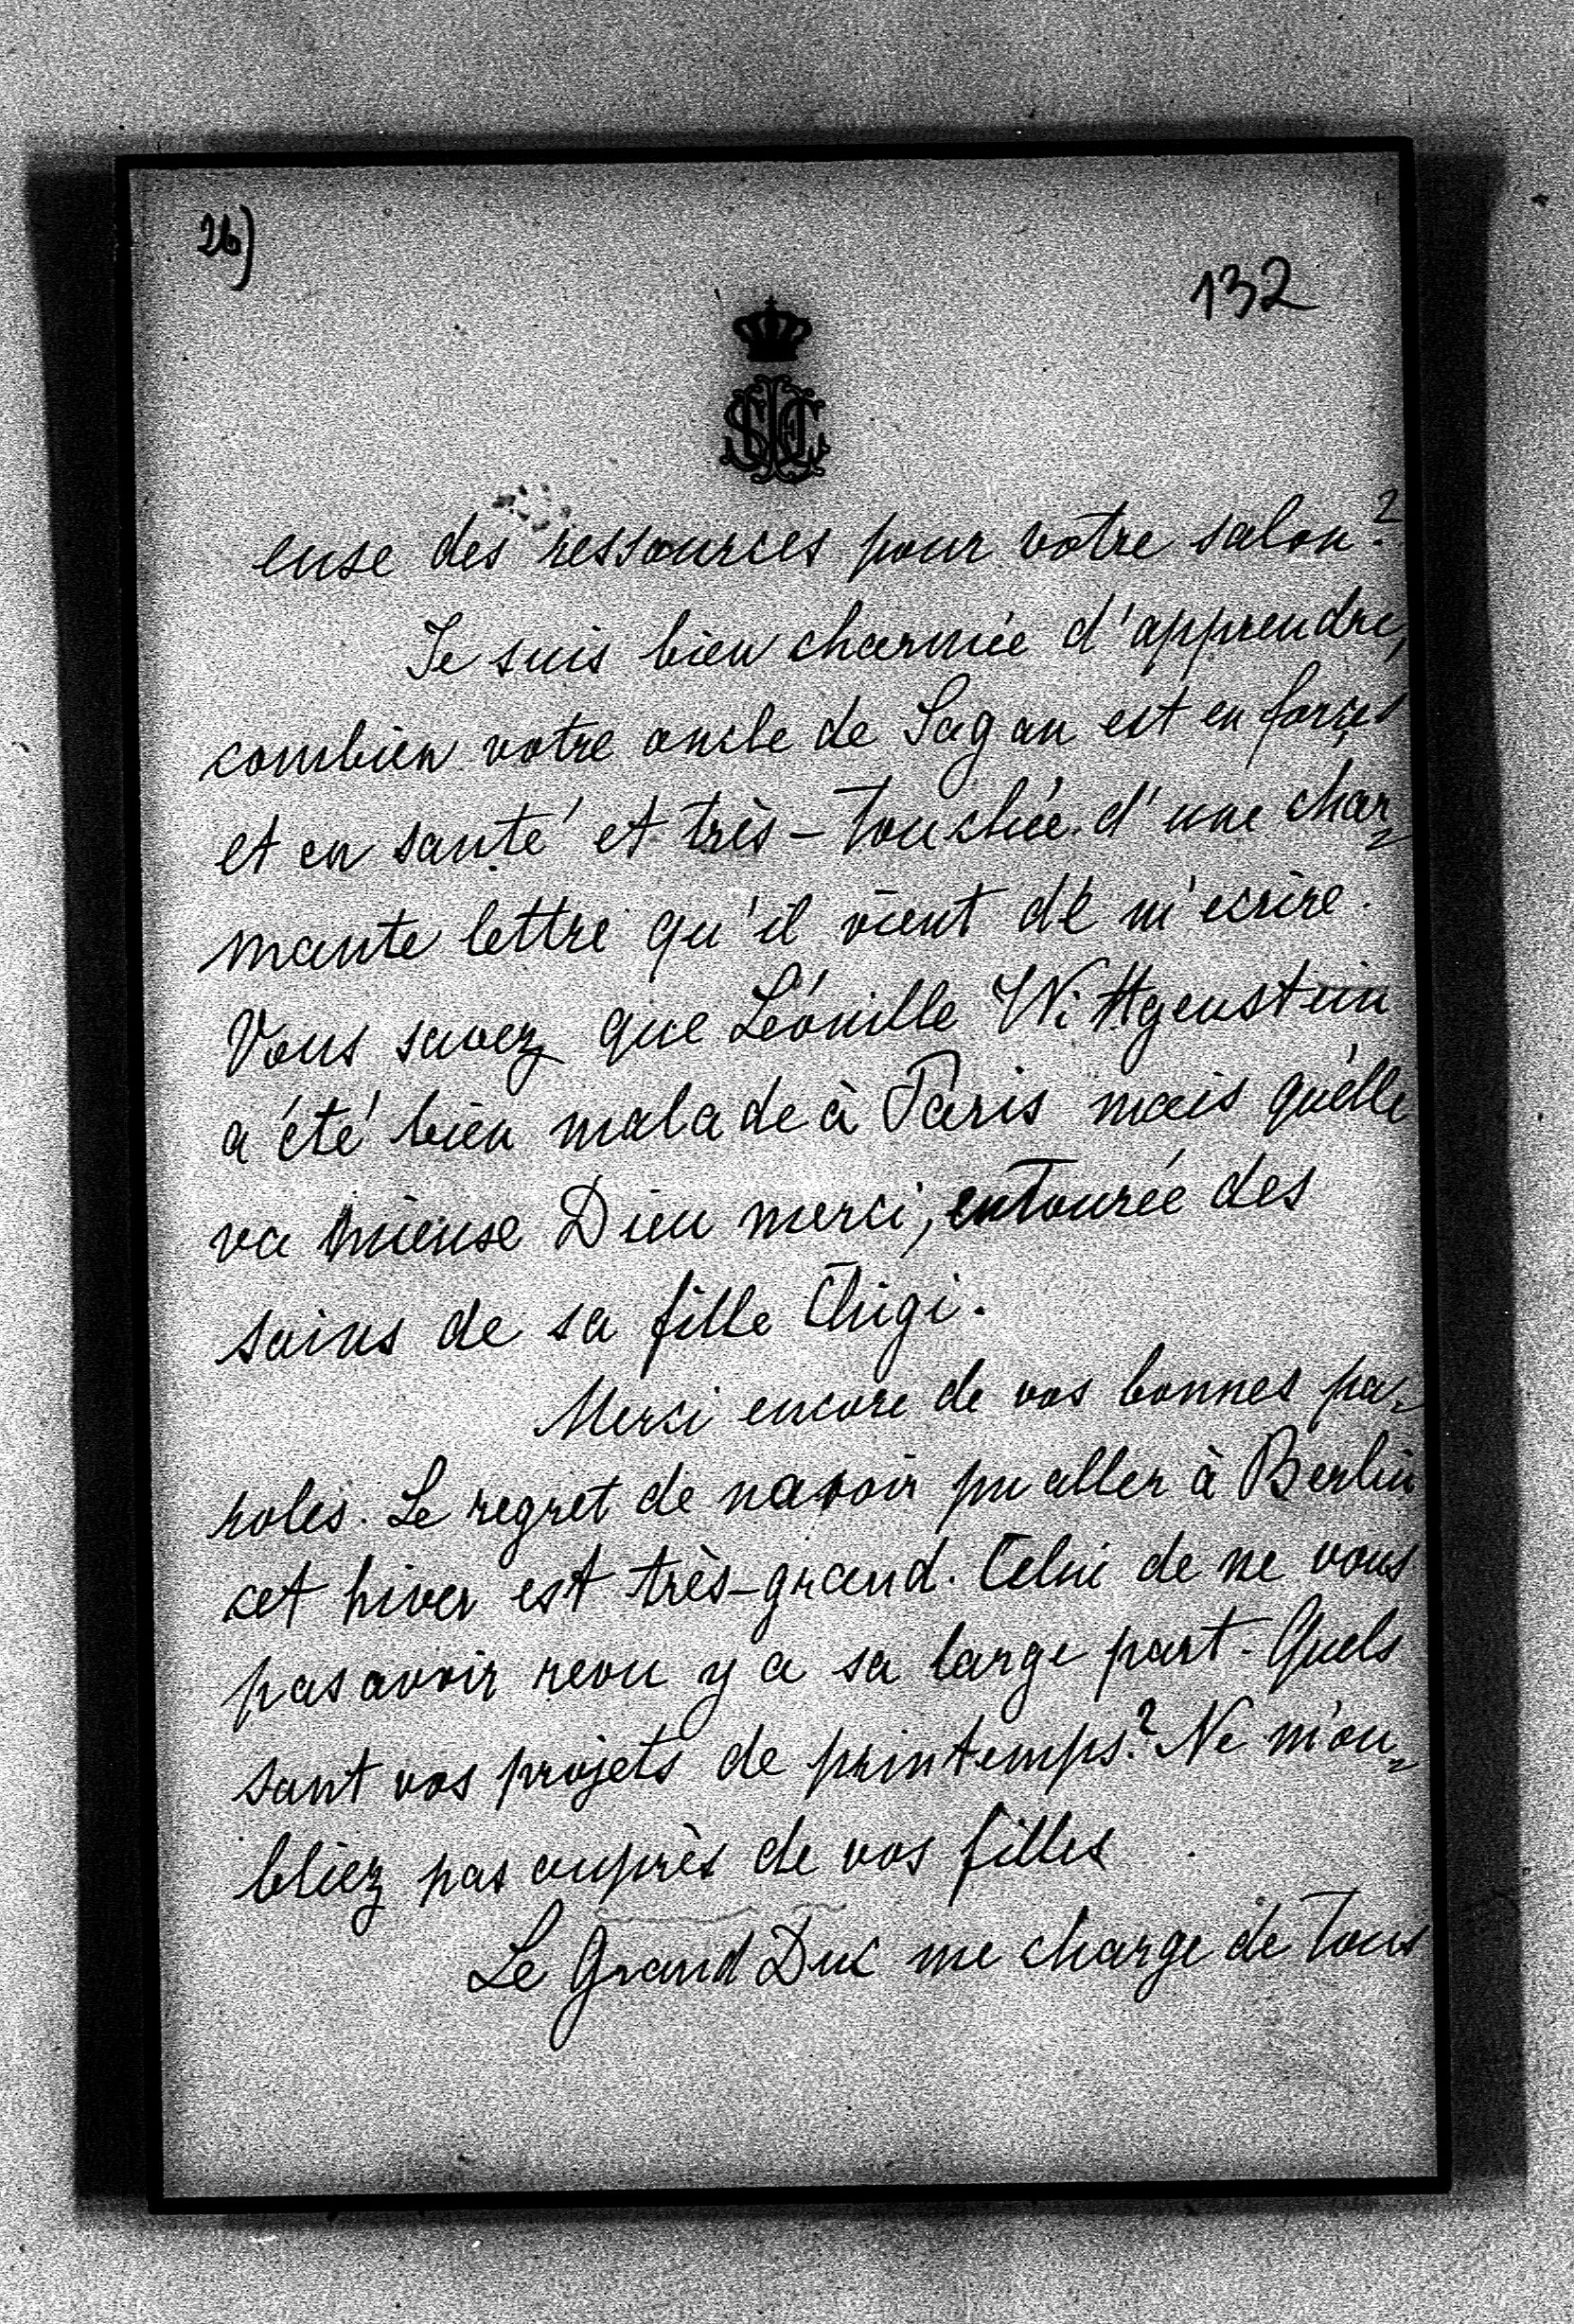 26)
132
euse des ressources pour votre salon?
Je suis bien charmée d'apprendre,
combien votre oncle de Sagan est en forces
et en santé et très-touchée d'une char=
mante lettre qu'il vient de m'ecrire.
Vous savez que Léonille Wittgenstein
a été bien malade à Paris mais qu'elle
va mieuse Dieu merci, entourée des
soins de sa fille Chigi.
Merci encore de vos bonnes pa=
roles. Le regret de navoir pu aller à Berlin
cet hiver est très-grand. Celui de ne vous
pas avoir revu y a sa large part. Quels
sont vos projets de printemps? Ne m'ou=
bliez pas auprès de vos filles
Le Grand Duc me charge de tous